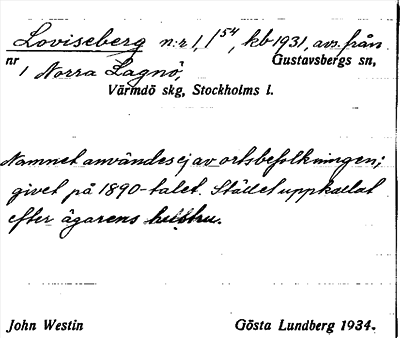 Loviseberg n:r 1, 1⁵⁴, kb 1931, avs. från
nr 1 Norra Lagnö, Gustavsbergs sn,
Värmdö skg, Stockholms l.
Namnet användes ej av ortsbefolkningen;
givet på 1890-talet. Stället uppkallat
efter ägarens hustru.
John Westin Gösta Lundberg 1934.